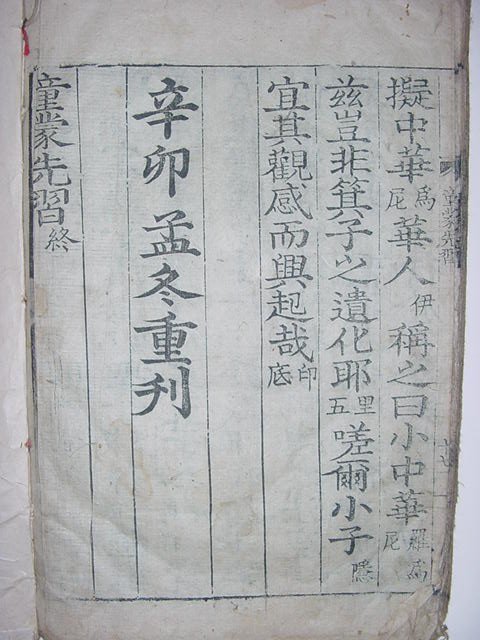 擬中華爲尼華人伊稱之曰小中華羅爲尼
玆豈非箕子之遺化耶里五嗟爾小子隱
宜其觀感而興起哉印底
辛卯孟冬重刊
童蒙先習終